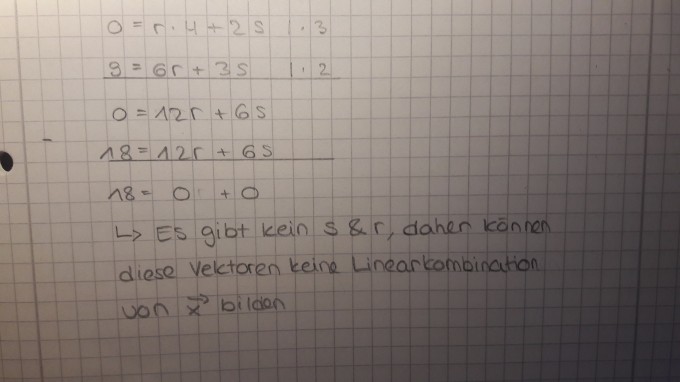 0 = r · 4 + 2 s | · 3
9 = 6r + 3s | · 2
0 = 12r + 6s
- 18 = 12r + 6s
18 = 0 + 0
↳ Es gibt kein s & r, daher können
diese Vektoren keine Linearkombination
von x⃗ bilden